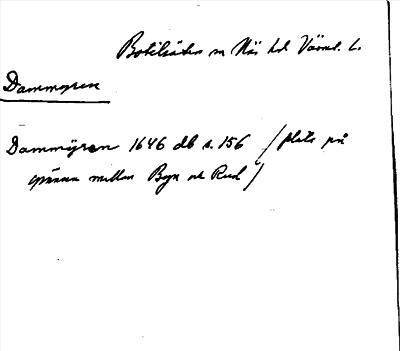 Botilsäter sn Näs hd Värml. l.
Dammyren
Dammÿren 1646 db s. 156 / plats på
gränsen mellan Byn och Rud /